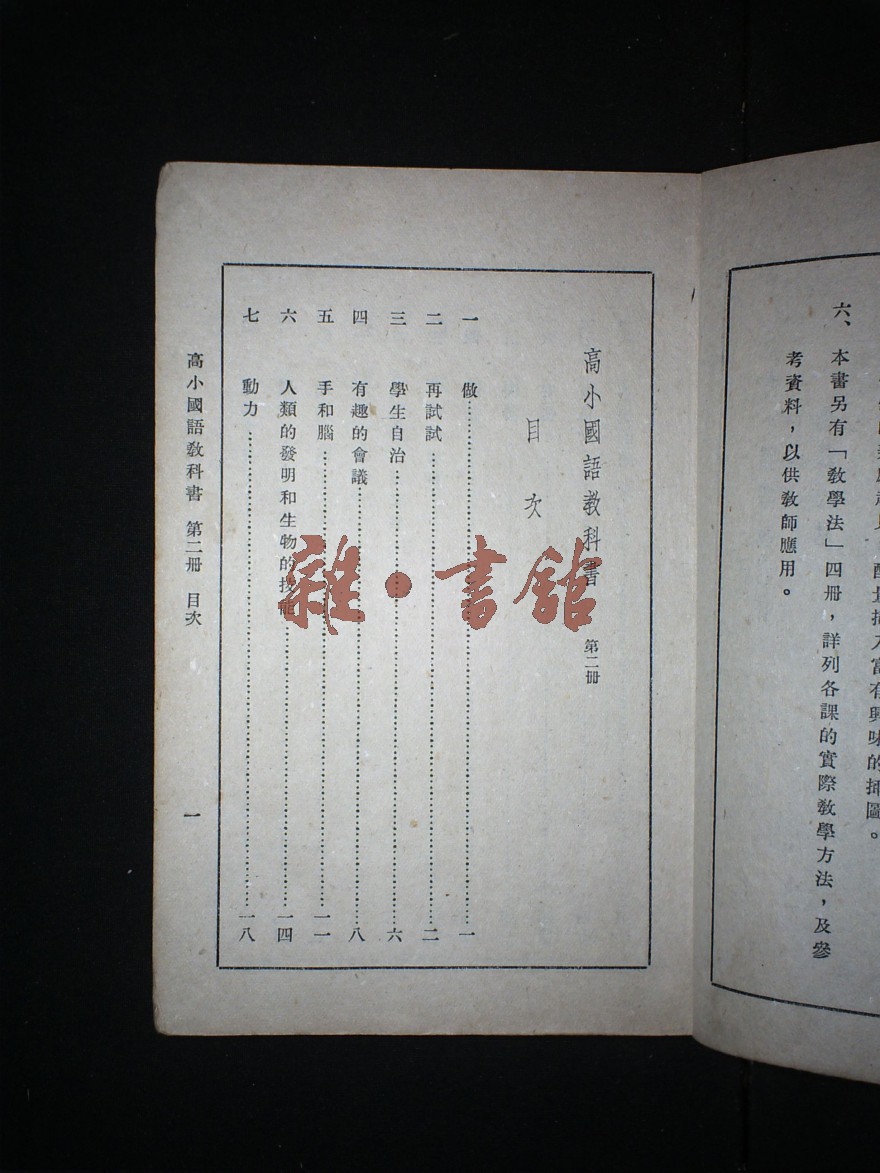 配量插入富有興味的插圖。
六、本書另有「教學法」四冊，詳列各課的實際教學方法，及參
考資料，以供教師應用。
高小國語教科書 第二冊
目次
一 做……一
二 再試試……二
三 學生自治……六
四 有趣的會議……八
五 手和腦……一一
六 人類的發明和生物的技能……一四
七 動力……一八
高小國語教科書 第二冊 目次 一
雜·書館